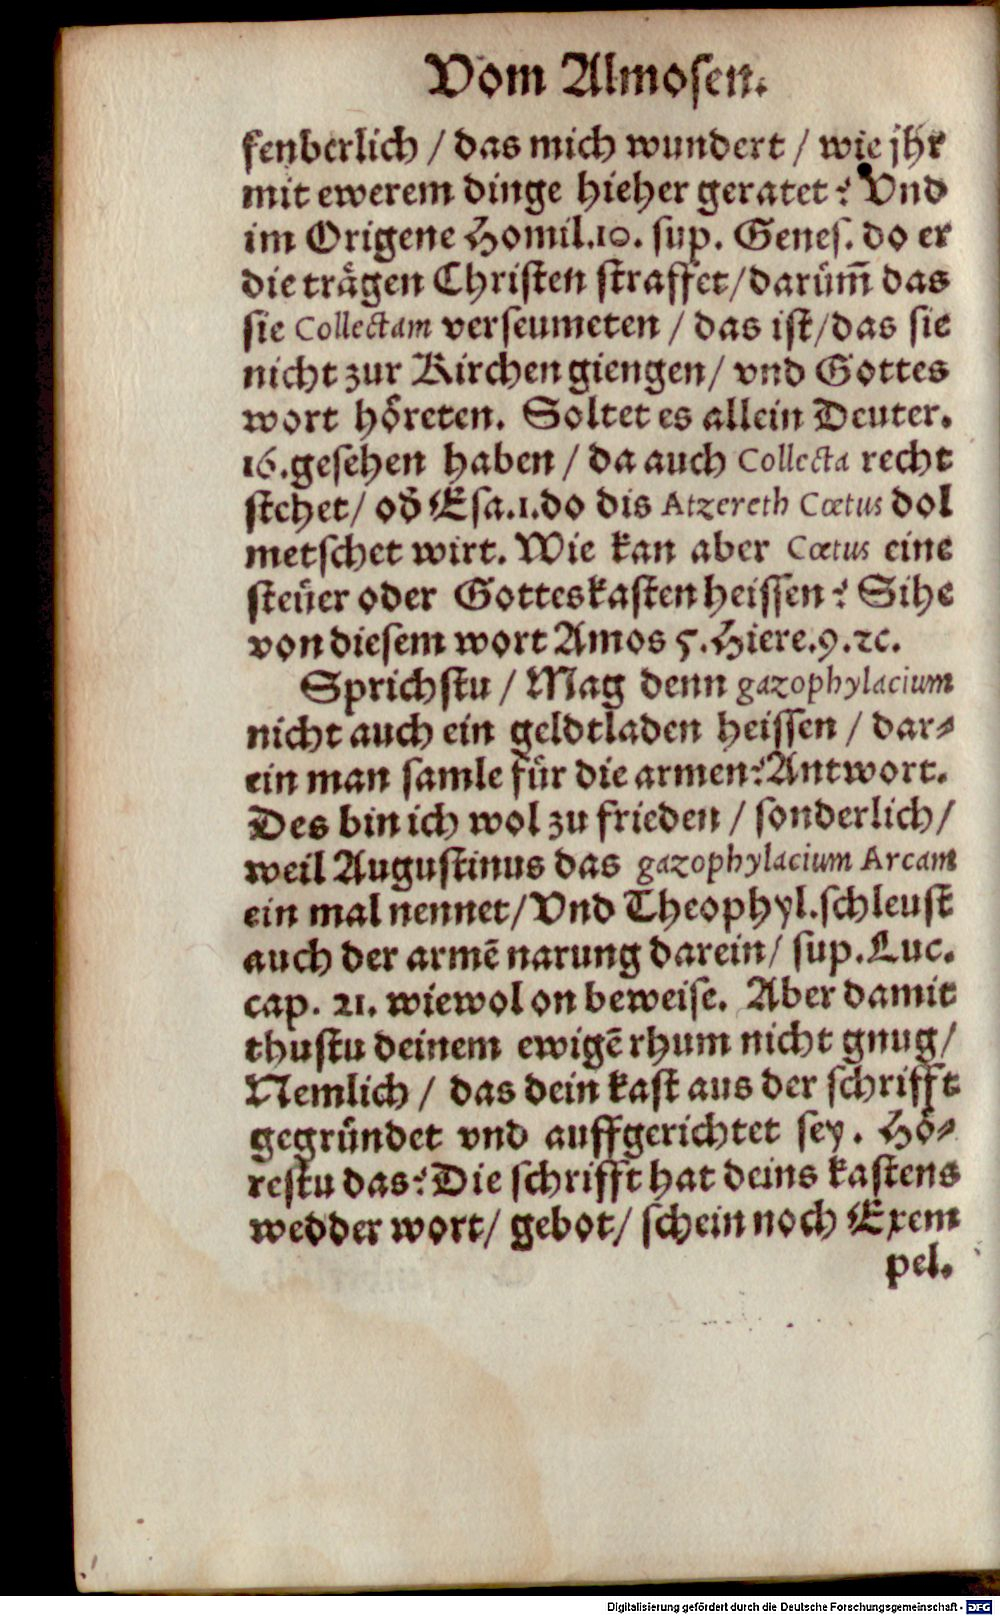 Vom Almosen.
fenberlich / das mich wundert / wie jhr
mit ewerem dinge hieher geratet? Vnd
im Origene Homil.10. sup. Genes. do er
die trägen Christen straffet/darüm̃ das
sie Collectam verseumeten / das ist/das sie
nicht zur Kirchen giengen/ vnd Gottes
wort höreten. Soltet es allein Deuter.
16.gesehen haben / da auch Collecta recht
stehet/ od̃ Esa.1.do dis Atzereth Cœtus dol
metschet wirt. Wie kan aber Cœtus eine
steüer oder Gotteskasten heissen? Sihe
von diesem wort Amos 5.Hiere.9.ꝛc.
Sprichstu / Mag denn gazophylacium
nicht auch ein geldtladen heissen / dar⸗
ein man samle für die armen?Antwort.
Des bin ich wol zu frieden / sonderlich/
weil Augustinus das gazophylacium Arcam
ein mal nennet/Vnd Theophyl.schleust
auch der armẽ narung darein/ sup.Luc.
cap. 21. wiewol on beweise. Aber damit
thustu deinem ewigẽ rhum nicht gnug/
Nemlich / das dein kast aus der schrifft
gegründet vnd auffgerichtet sey. Hö⸗
restu das?Die schrifft hat deins kastens
wedder wort/ gebot/ schein noch Exem
pel.
Digitalisierung gefördert durch die Deutsche Forschungsgemeinschaft - DFG